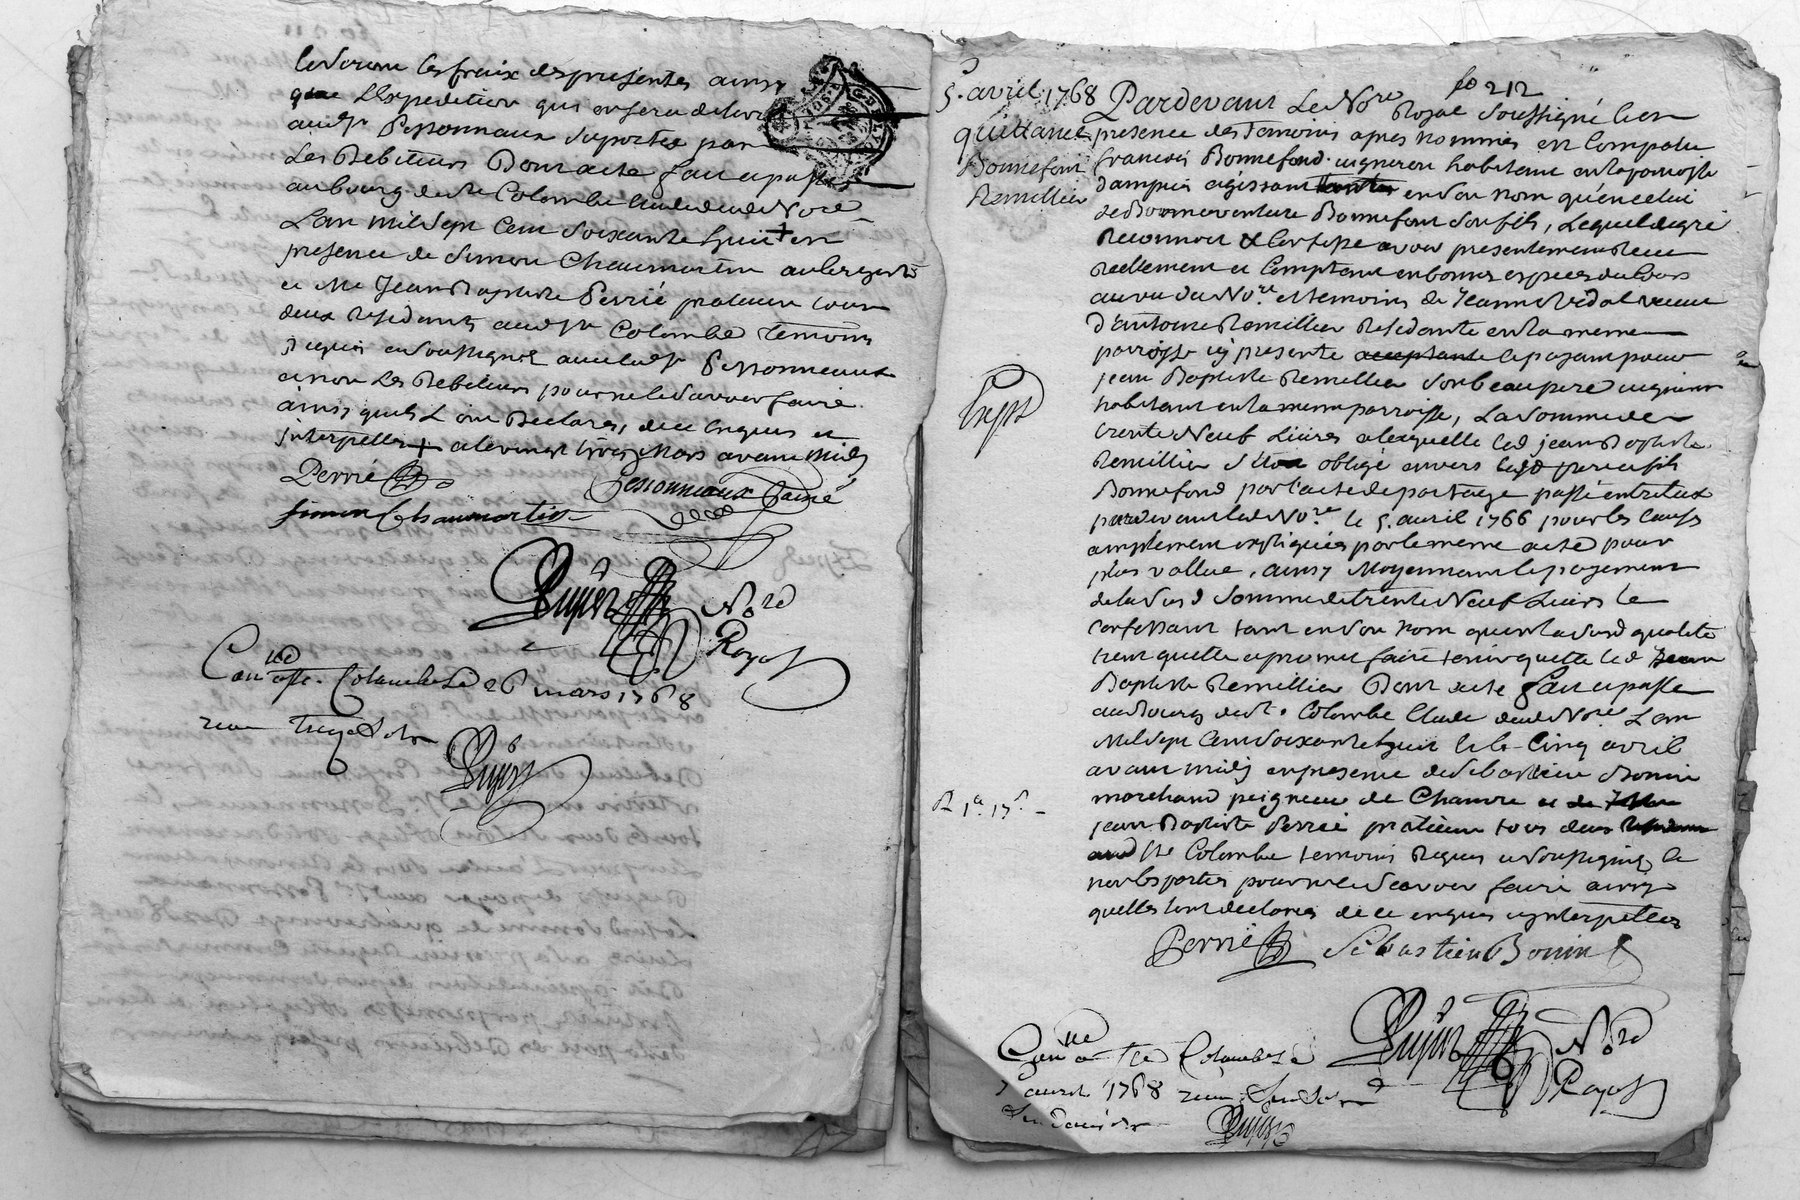 les fraix des presentes ainsy
que L'expedition qui en sera
aud sr Pessonneaux suportés par
Les Debiteurs Dont acte fait et passé
au bourg de ste Colombe Etude dud No.re
L'an mil sept Cent soixante huit + en
presence de Simon Chaumartin aubergiste
et Me Jean Baptiste Perrié praticien tous
deux residants aud ste Colombe temoins
requis et soussignés avec led sr Pessonneaux
et non Les Debiteurs pour ne le sçavoir faire
ainsy quils L'ont Declarés, de ce enquis et
interpellés + et le vingt trois Mars avant midy
Perrié
Pessonneaux L'ainé
simon Chaumartin
Dujer No.re
Royal
Con.llé à ste Colombe le 26 mars 1768
reçu treize sols
Dujer
fo 212
5. avril 1768
quittance
Bonnefont
Remillier
Pardevant Le No.re Royal Soussigné et en
presence des temoins apres nommés est Comparu
françois Bonnefond vigneron habitant en la parroisse
d'ampuis agissant en son nom qu'en celui
de Bonneventure Bonnefont son fils, Lequel de gré
Reconnoit & Confesse avoir presentement Receu
Reellement et Comptant en bonnes especes du Cours
au vu du No.re et temoins de Jeanne Vidal veuve
d'antoine Remillier Residante en la meme
parroisse icy presente acceptante le payant pour
jean Baptiste Remillier son beaupere vigneron
habitant en la meme parroisse, La somme de
trente Neuf Livres a laquelle led jean Baptiste
Remillier s'etoit obligé envers lesd pere et fils
Bonnefond par l'acte de partage passé entre eux
pardevant led No.re le 5. avril 1766 pour les Causes
amplement expliquées par le meme acte pour
plus vallue, ainsy Moyennant le payement
de la susd somme de trente Neuf Livres le
Confessant tant en son nom qu'en la susd qualité
tient quitte et promet faire tenir quitte led Jean
Baptiste Remillier Dont acte fait et passé
au Bourg de ste. Colombe Etude dud No.re L'an
Mil sept Cent soixante huit & le Cinq avril
avant midy en presence de Sebastien Bonin
marchand peigneur de Chanvre et
jean Baptiste Perrié praticien tous deux
aud ste Colombe temoins Requis et soussignés &
non les parties pour ne le sçavoir faire ainsy
quelles l'ont declarés de ce enquis et interpellés
Expd
Perrié Sébastien Bonin
Dujer No.re
Royal
Con.llé à Ste Colombe le
5 avril 1768 reçu
Dujer